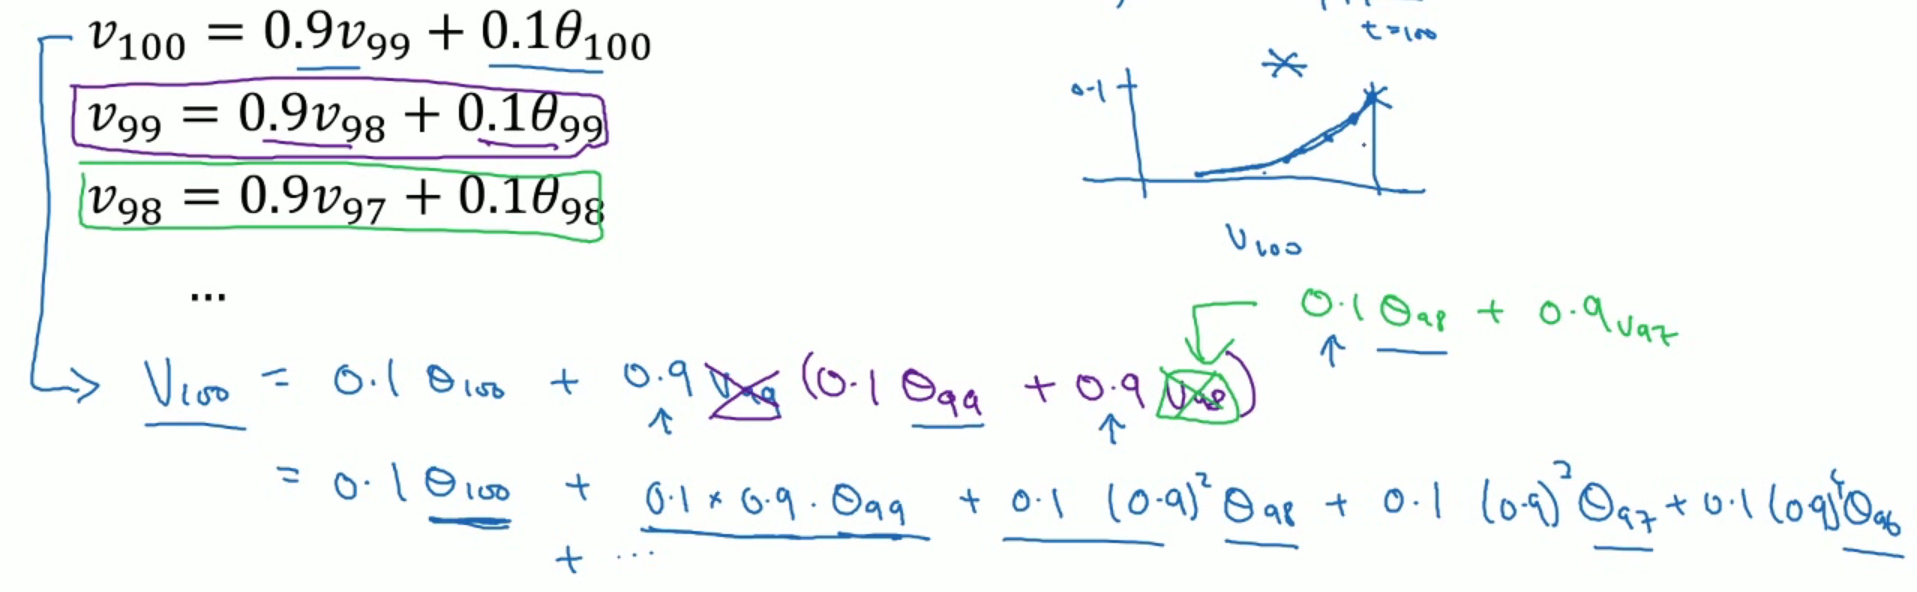 v₁₀₀ = 0.9v₉₉ + 0.1θ₁₀₀
t=100
v₉₉ = 0.9v₉₈ + 0.1θ₉₉
0.1
v₉₈ = 0.9v₉₇ + 0.1θ₉₈
V₁₀₀
...
0.1 θ₉₈ + 0.9 v₉₇
V₁₀₀ = 0.1 θ₁₀₀ + 0.9 v₉₉ (0.1 θ₉₉ + 0.9 v₉₈)
= 0.1 θ₁₀₀ + 0.1 × 0.9 · θ₉₉ + 0.1 (0.9)² θ₉₈ + 0.1 (0.9)³ θ₉₇ + 0.1 (0.9)⁴ θ₉₆
+ ...